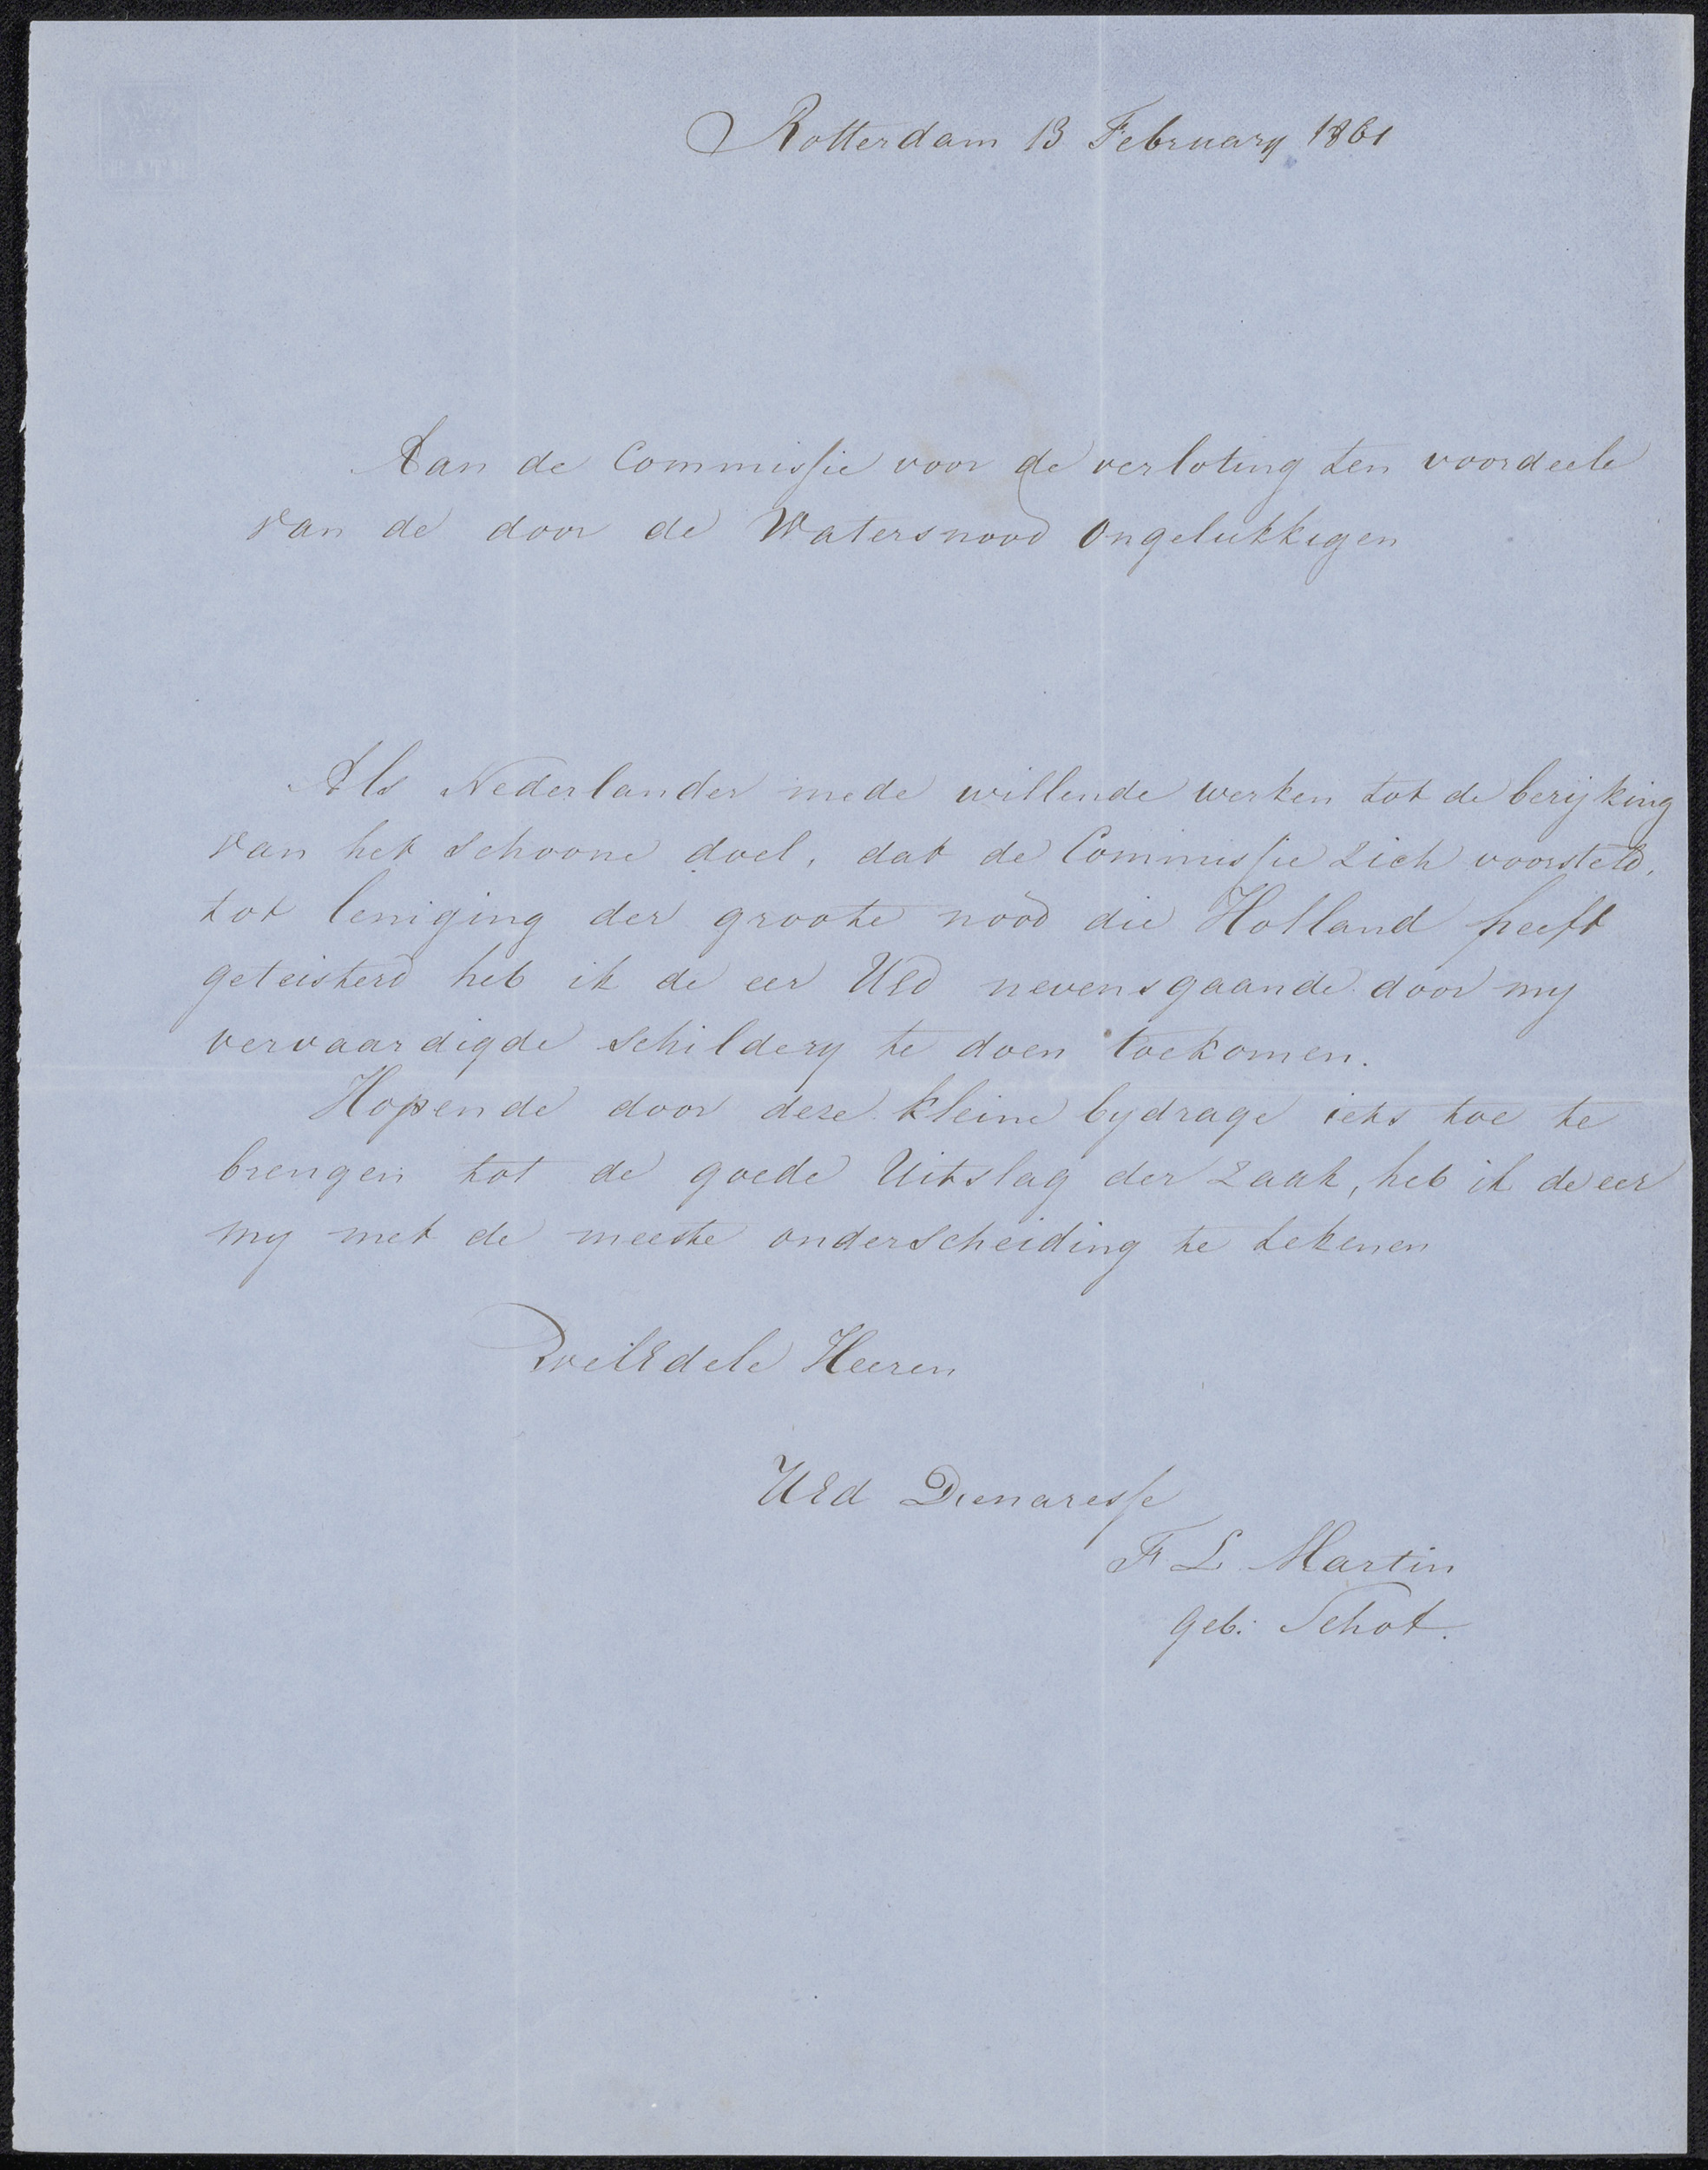 Rotterdam 13 February 1861
Aan de Commissie voor de verloting ten voordeele
van de door de Watersnood ongelukkigen
Als Nederlander mede willende werken tot de berijking
van het schoone doel, dat de Commissie zich voorsteld,
tot leniging der groote nood die Holland heeft
geteisterd heb ik de eer UEd nevensgaande door my
vervaardigde schildery te doen toekomen.
Hopende door deze kleine bydrage iets toe te
brengen tot de goede Uitslag der zaak, heb ik de eer
my met de meeste onderscheiding te tekenen
WelEdele Heeren
UEd Dienaresse
F L Martin
geb: Schot.